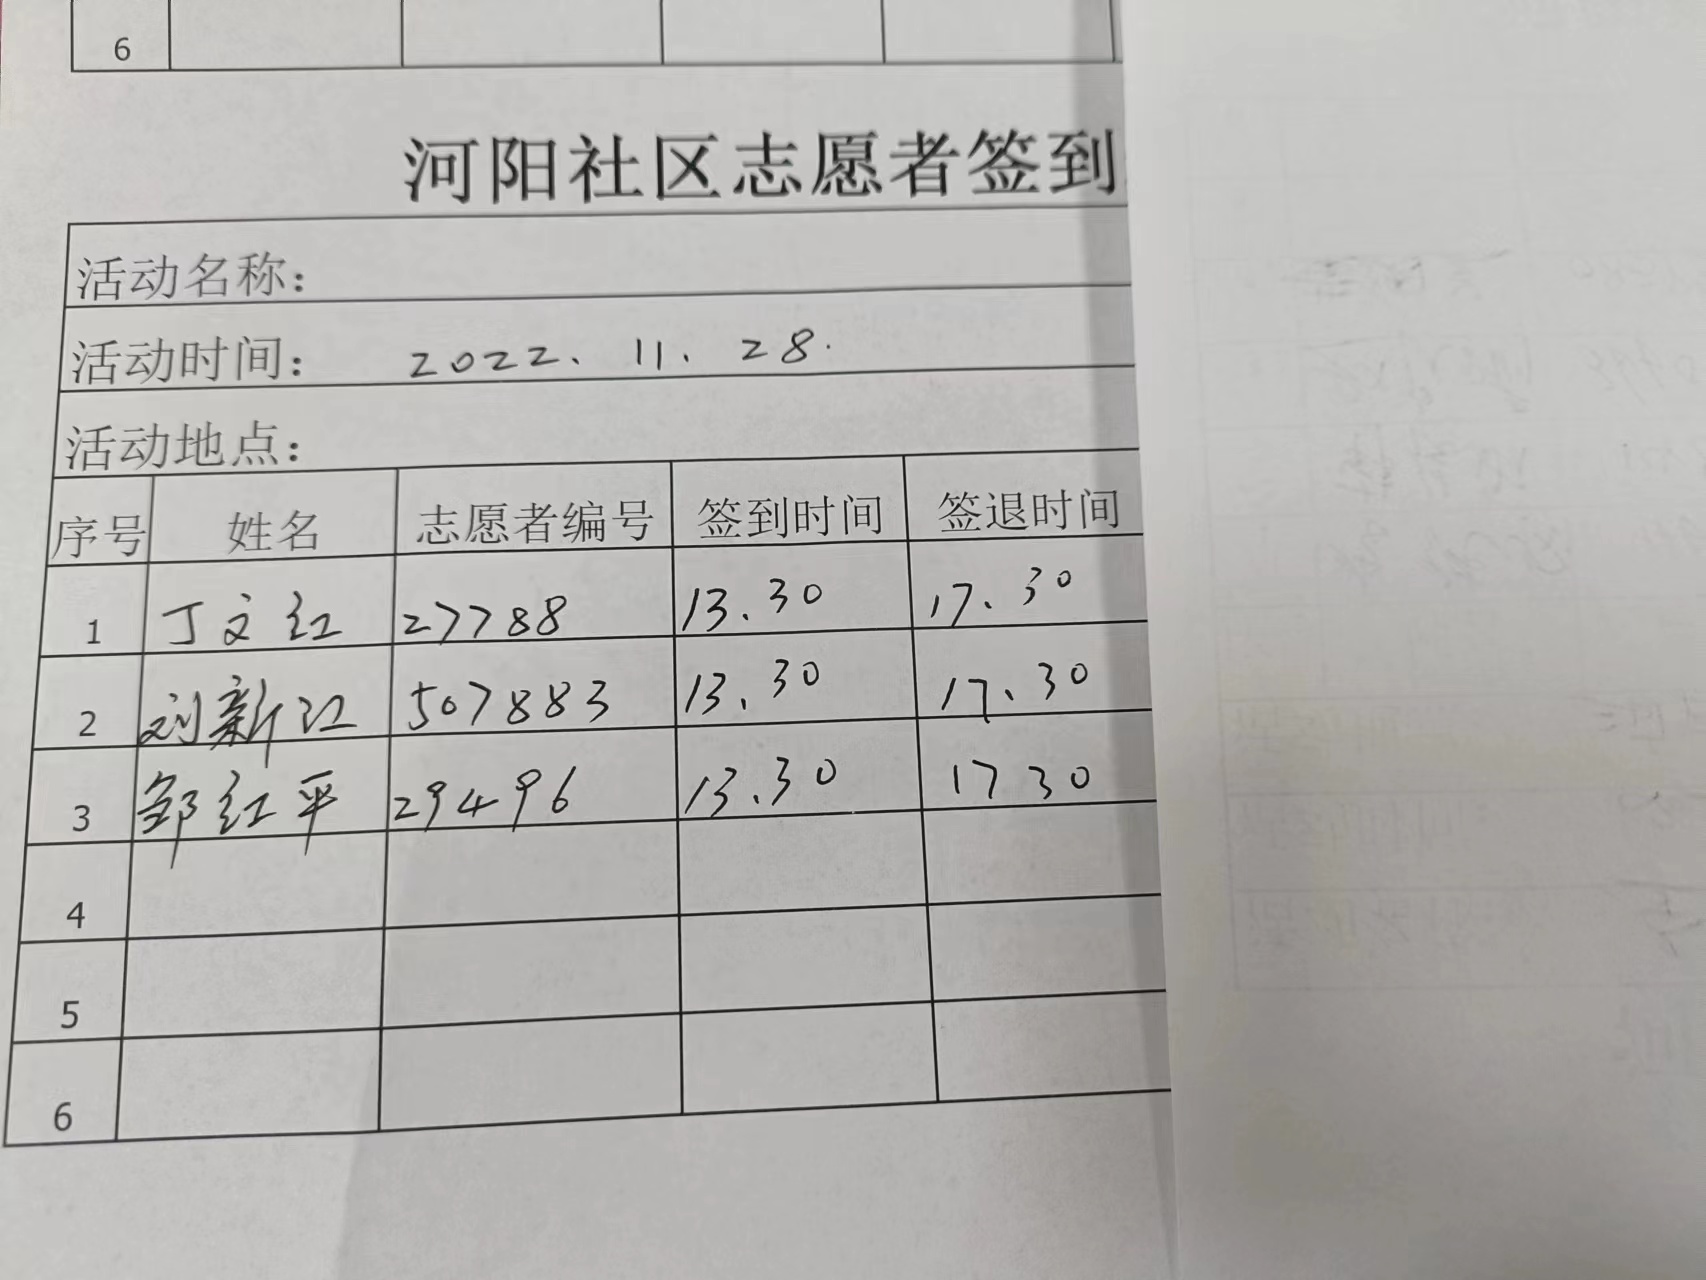 6
河阳社区志愿者签到
活动名称：
活动时间： 2022. 11. 28.
活动地点：
序号 姓名 志愿者编号 签到时间 签退时间
1 丁文红 27788 13.30 17.30
2 刘新江 507883 13.30 17.30
3 邹红平 29496 13.30 17 30
4
5
6